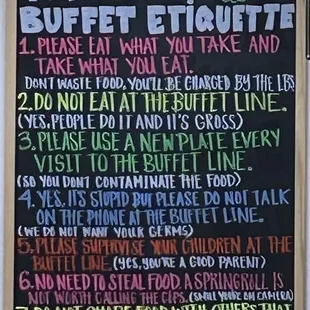 BUFFET ETIQUETTE
1. PLEASE EAT WHAT YOU TAKE AND
TAKE WHAT YOU EAT.
DON'T WASTE FOOD, YOU'LL BE CHARGED BY THE LBS
2. DO NOT EAT AT THE BUFFET LINE.
(YES, PEOPLE DO IT AND IT'S GROSS)
3. PLEASE USE A NEW PLATE EVERY
VISIT TO THE BUFFET LINE.
(SO YOU DON'T CONTAMINATE THE FOOD)
4. YES, IT'S STUPID BUT PLEASE DO NOT TALK
ON THE PHONE AT THE BUFFET LINE.
(WE DO NOT WANT YOUR GERMS)
5. PLEASE SUPERVISE YOUR CHILDREN AT THE
BUFFET LINE. (YES, YOU'RE A GOOD PARENT)
6. NO NEED TO STEAL FOOD. A SPRINGROLL IS
NOT WORTH CALLING THE COPS. (SMILE YOU'RE ON CAMERA)
7. DO NOT SHARE FOOD WITH OTHERS THAT